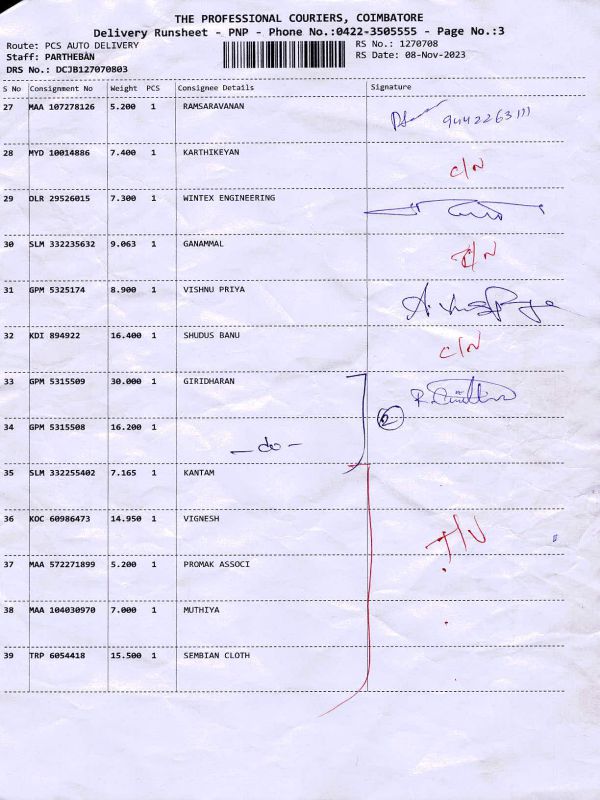 THE PROFESSIONAL COURIERS, COIMBATORE
Delivery Runsheet - PNP - Phone No.:0422-3505555 - Page No.:3
Route: PCS AUTO DELIVERY
RS No.: 1270708
Staff: PARTHEBAN
RS Date: 08-Nov-2023
DRS No.: DCJB127070803
S No Consignment No Weight PCS Consignee Details Signature
27 MAA 107278126 5.200 1 RAMSARAVANAN
9442263111
28 MYD 10014886 7.400 1 KARTHIKEYAN
C/N
29 DLR 29526015 7.300 1 WINTEX ENGINEERING
30 SLM 332235632 9.063 1 GANAMMAL
/N
31 GPM 5325174 8.900 1 VISHNU PRIYA
32 KDI 894922 16.400 1 SHUDUS BANU
C/N
33 GPM 5315509 30.000 1 GIRIDHARAN
34 GPM 5315508 16.200 1
2
-do-
35 SLM 332255402 7.165 1 KANTAM
36 KOC 60986473 14.950 1 VIGNESH
T/N
37 MAA 572271899 5.200 1 PROMAK ASSOCI
38 MAA 104030970 7.000 1 MUTHIYA
39 TRP 6054418 15.500 1 SEMBIAN CLOTH